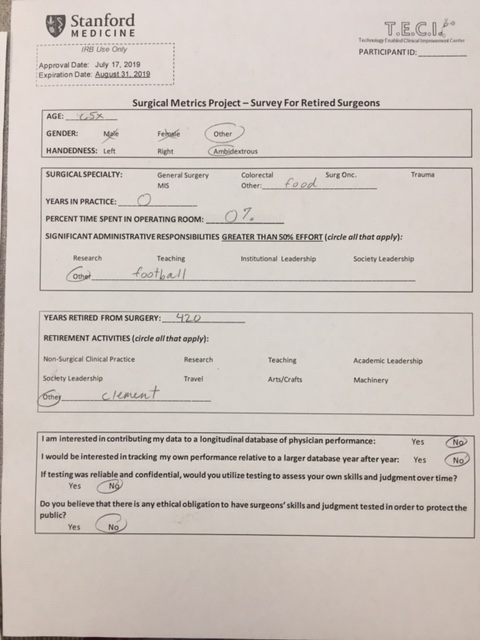 Stanford
MEDICINE
T.E.C.I.
Technology Enabled Clinical Improvement Center
IRB Use Only
PARTICIPANT ID:
Approval Date: July 17, 2019
Expiration Date: August 31, 2019
Surgical Metrics Project – Survey For Retired Surgeons
AGE:
GENDER: Male Female Other
HANDEDNESS: Left Right Ambidextrous
SURGICAL SPECIALTY: General Surgery Colorectal Surg Onc. Trauma
MIS Other: food
YEARS IN PRACTICE: 0
PERCENT TIME SPENT IN OPERATING ROOM: 0%
SIGNIFICANT ADMINISTRATIVE RESPONSIBILITIES GREATER THAN 50% EFFORT (circle all that apply):
Research Teaching Institutional Leadership Society Leadership
Other football
YEARS RETIRED FROM SURGERY: 420
RETIREMENT ACTIVITIES (circle all that apply):
Non-Surgical Clinical Practice Research Teaching Academic Leadership
Society Leadership Travel Arts/Crafts Machinery
Other clement
I am interested in contributing my data to a longitudinal database of physician performance: Yes No
I would be interested in tracking my own performance relative to a larger database year after year: Yes No
If testing was reliable and confidential, would you utilize testing to assess your own skills and judgment over time?
Yes No
Do you believe that there is any ethical obligation to have surgeons' skills and judgment tested in order to protect the
public?
Yes No